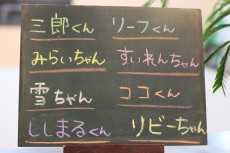 三郎くん リーフくん
みらいちゃん すいれんちゃん
雪ちゃん ココくん
ししまるくん リビーちゃん